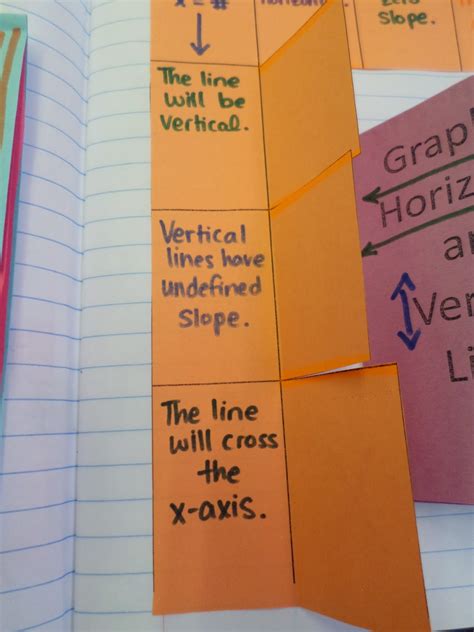 x = #
Slope.
The line
will be
vertical.
Vertical
lines have
undefined
Slope.
The line
will cross
the
x-axis.
Grap
Horiz
a
Ver
Li